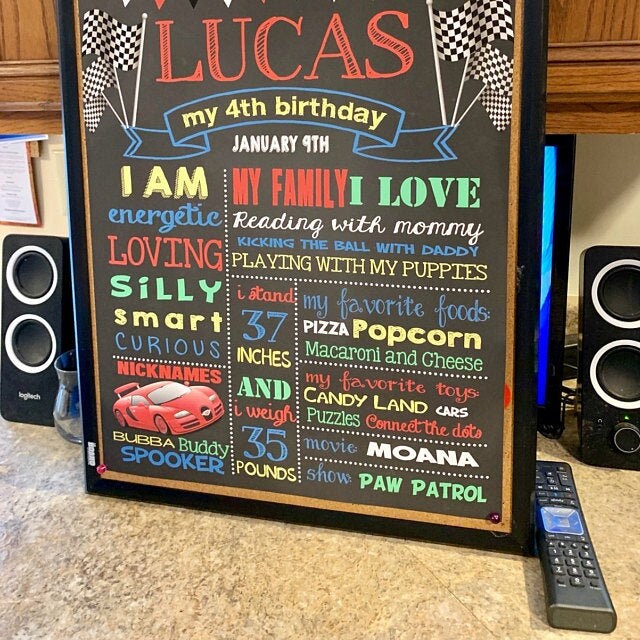 LUCAS
my 4th birthday
JANUARY 9TH
I AM
energetic
LOVING
SiLLY
smart
CURIOUS
MY FAMILY I LOVE
Reading with mommy
KICKING THE BALL WITH DADDY
PLAYING WITH MY PUPPIES
i stand
37
INCHES
AND
i weigh
35
POUNDS
my favorite foods:
PIZZA Popcorn
Macaroni and Cheese
my favorite toys:
CANDY LAND CARS
Puzzles Connect the dots
movie: MOANA
show: PAW PATROL
NICKNAMES
BUBBA Buddy
SPOOKER
logitech